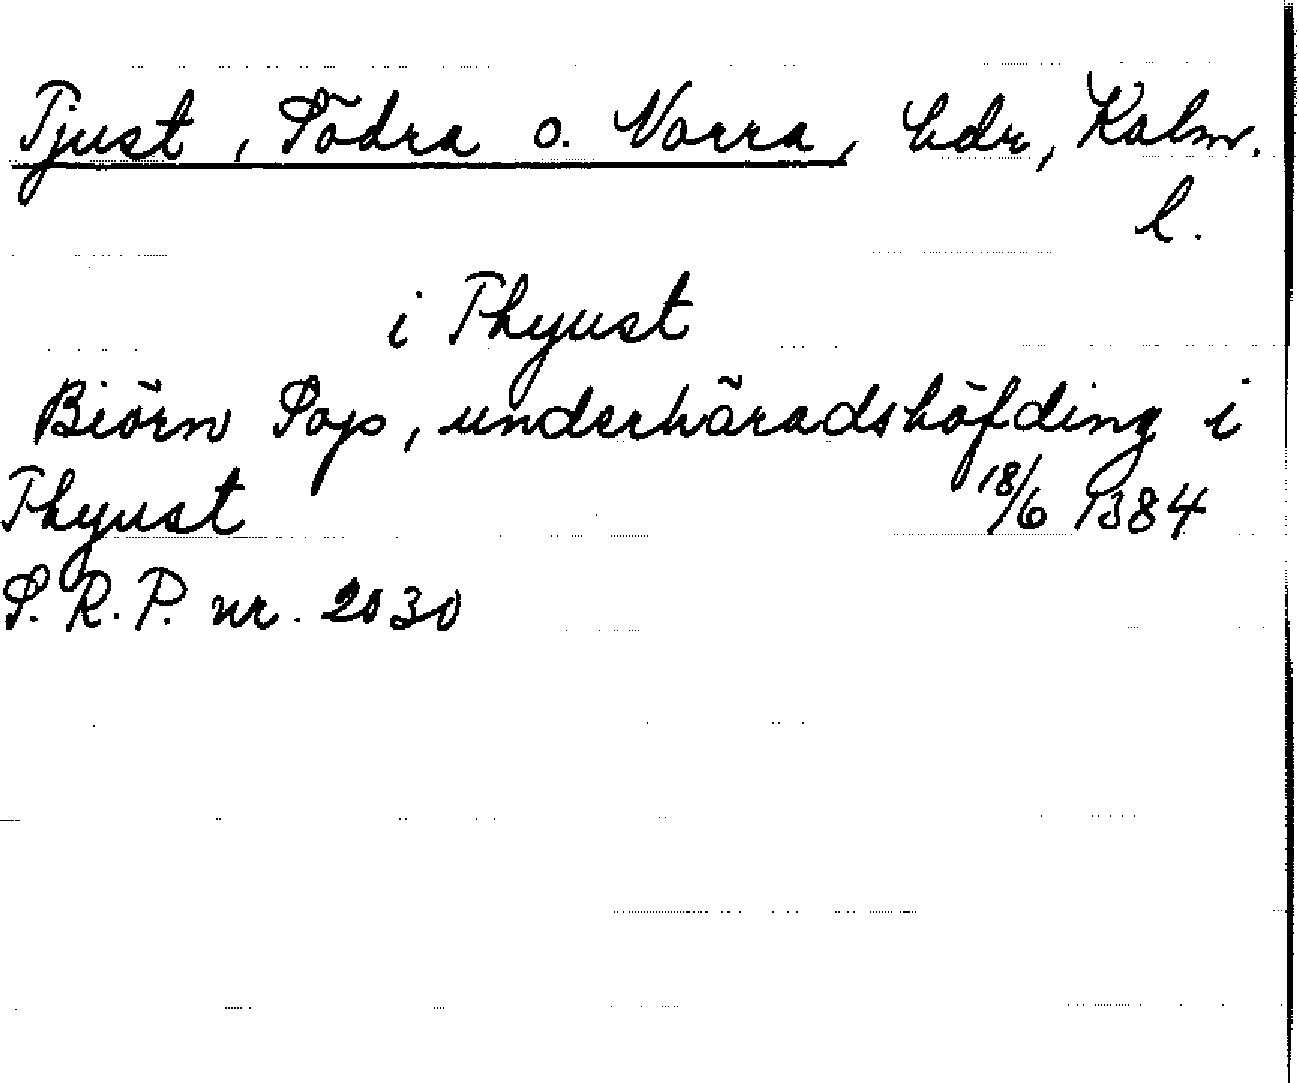 Tjust, Södra o. Norra, hdr, Kalm.
l.
i Thyust
Biörn Sops, underhäradshöfding i
Thyust 18/6 1384
S.R.P. nr. 2030